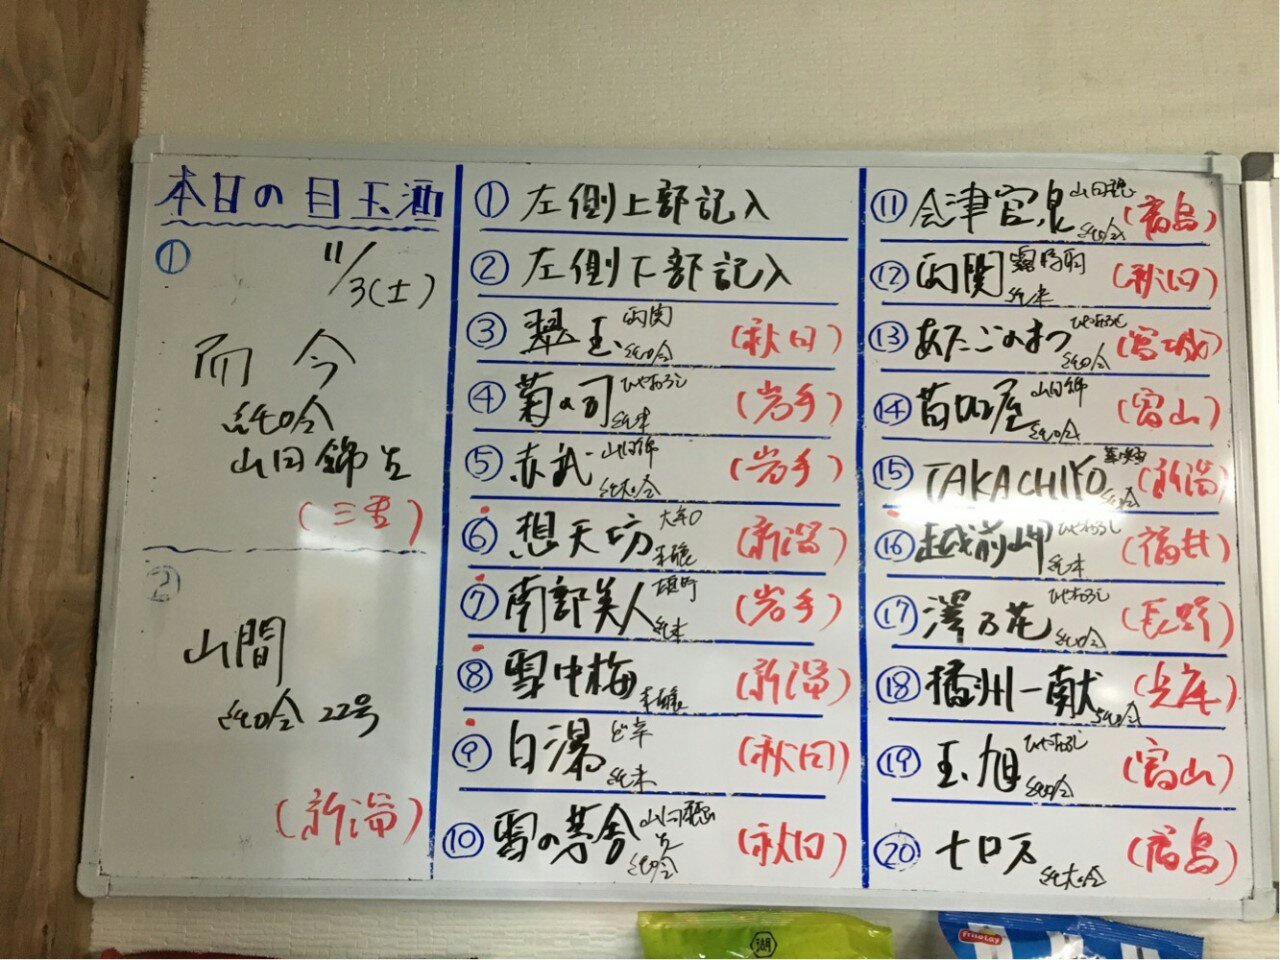 本日の目玉酒
11/3(土)
①
而今
純吟
山田錦
(三重)
②
山間
純吟 22号
(新潟)
① 左側上部記入
② 左側下部記入
③ 翠玉 両関 純吟 (秋田)
④ 菊の司 ひやおろし 純米 (岩手)
⑤ 赤武 山田錦 純大吟 (岩手)
⑥ 想天坊 大辛口 本醸 (新潟)
⑦ 南部美人 雄町 純米 (岩手)
⑧ 雪中梅 本醸 (新潟)
⑨ 白瀑 ど辛 純米 (秋田)
⑩ 雪の茅舎 山田穂 純吟 (秋田)
⑪ 会津宮泉 山田穂 純吟 (福島)
⑫ 両関 純米 (秋田)
⑬ あたごのまつ ひやおろし 純吟 (宮城)
⑭ 苗加屋 山田錦 純吟 (富山)
⑮ TAKACHIYO 純吟 (新潟)
⑯ 越前岬 ひやおろし 純米 (福井)
⑰ 澤乃花 ひやおろし 純吟 (長野)
⑱ 播州一献 純吟 (兵庫)
⑲ 玉旭 ひやおろし 純吟 (富山)
⑳ 十口万 純大吟 (福島)
湖
FritoLay